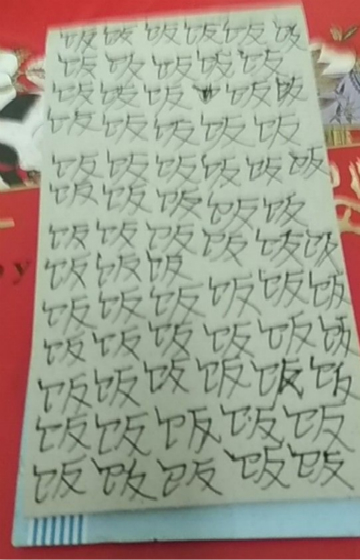 饭饭饭饭饭饭
饭饭饭饭饭
饭饭饭饭饭
饭饭饭饭饭
饭饭饭饭饭饭
饭饭饭饭饭
饭饭饭饭饭饭
饭饭饭
饭饭饭饭饭饭
饭饭饭饭饭饭
饭饭饭饭饭饭
饭饭饭饭饭
饭饭饭饭饭